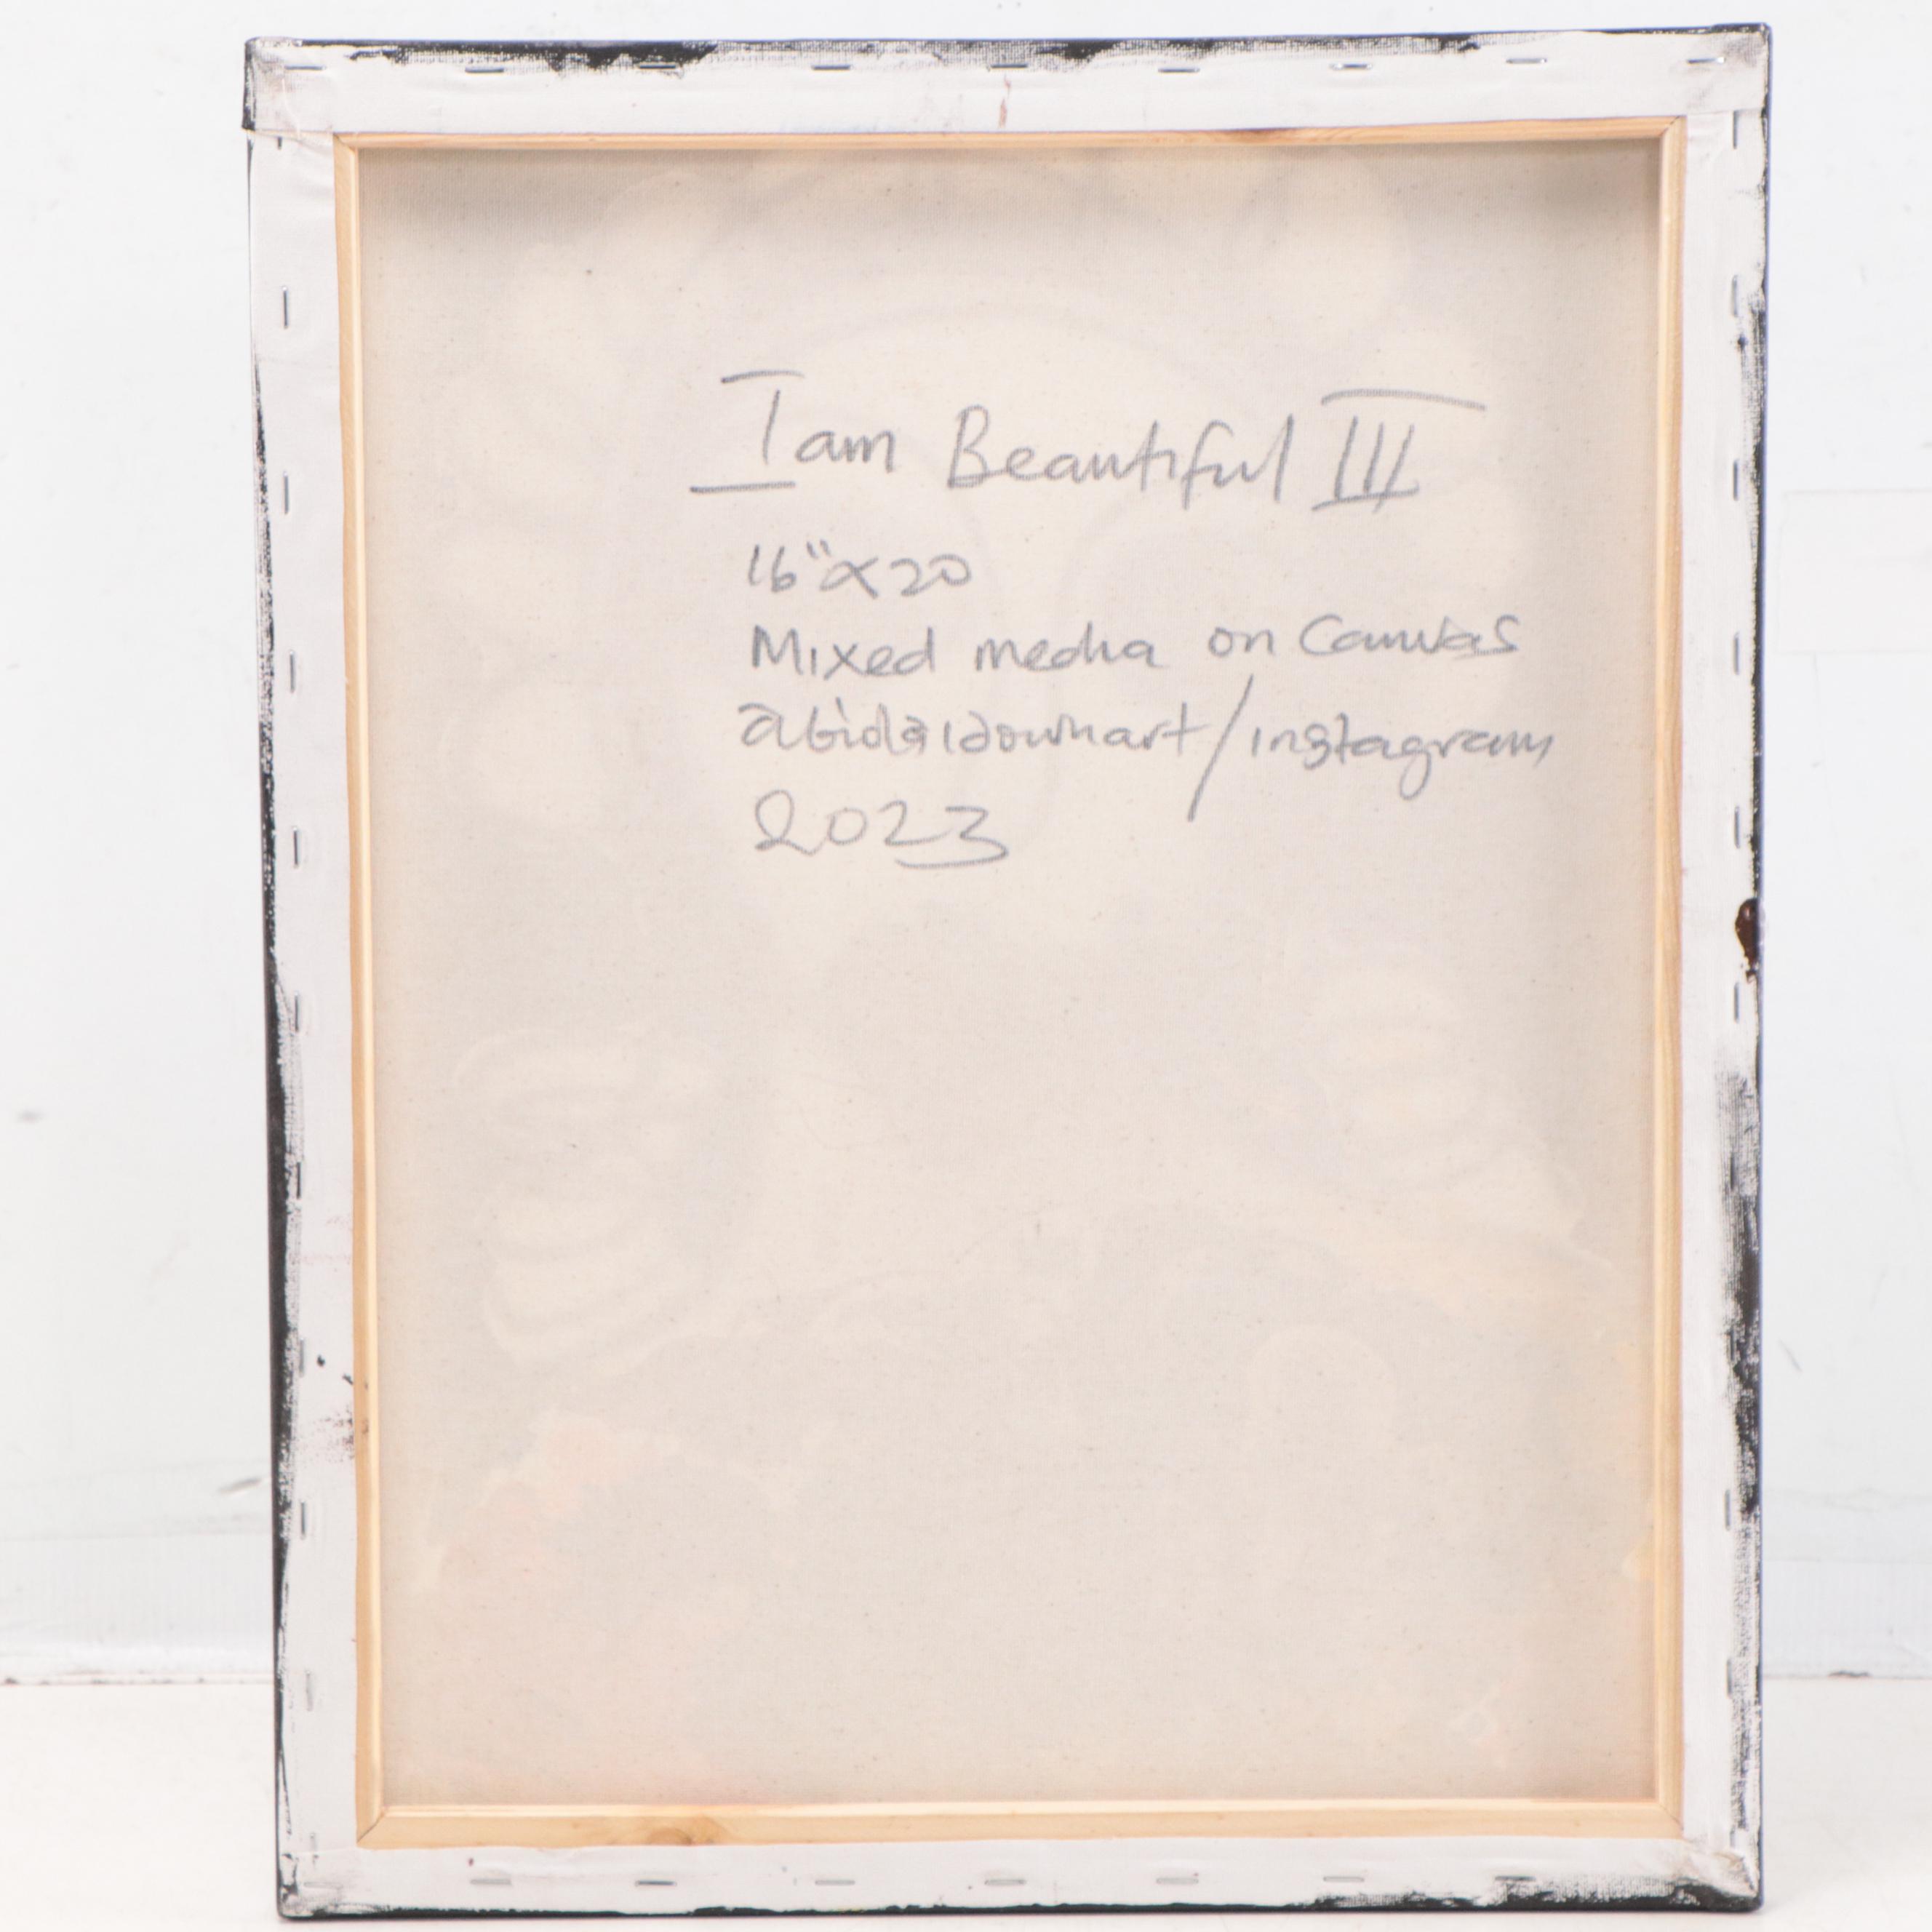 I am Beautiful III
16"x20
Mixed media on Canvas
abiolaidowuart/instagram
2023